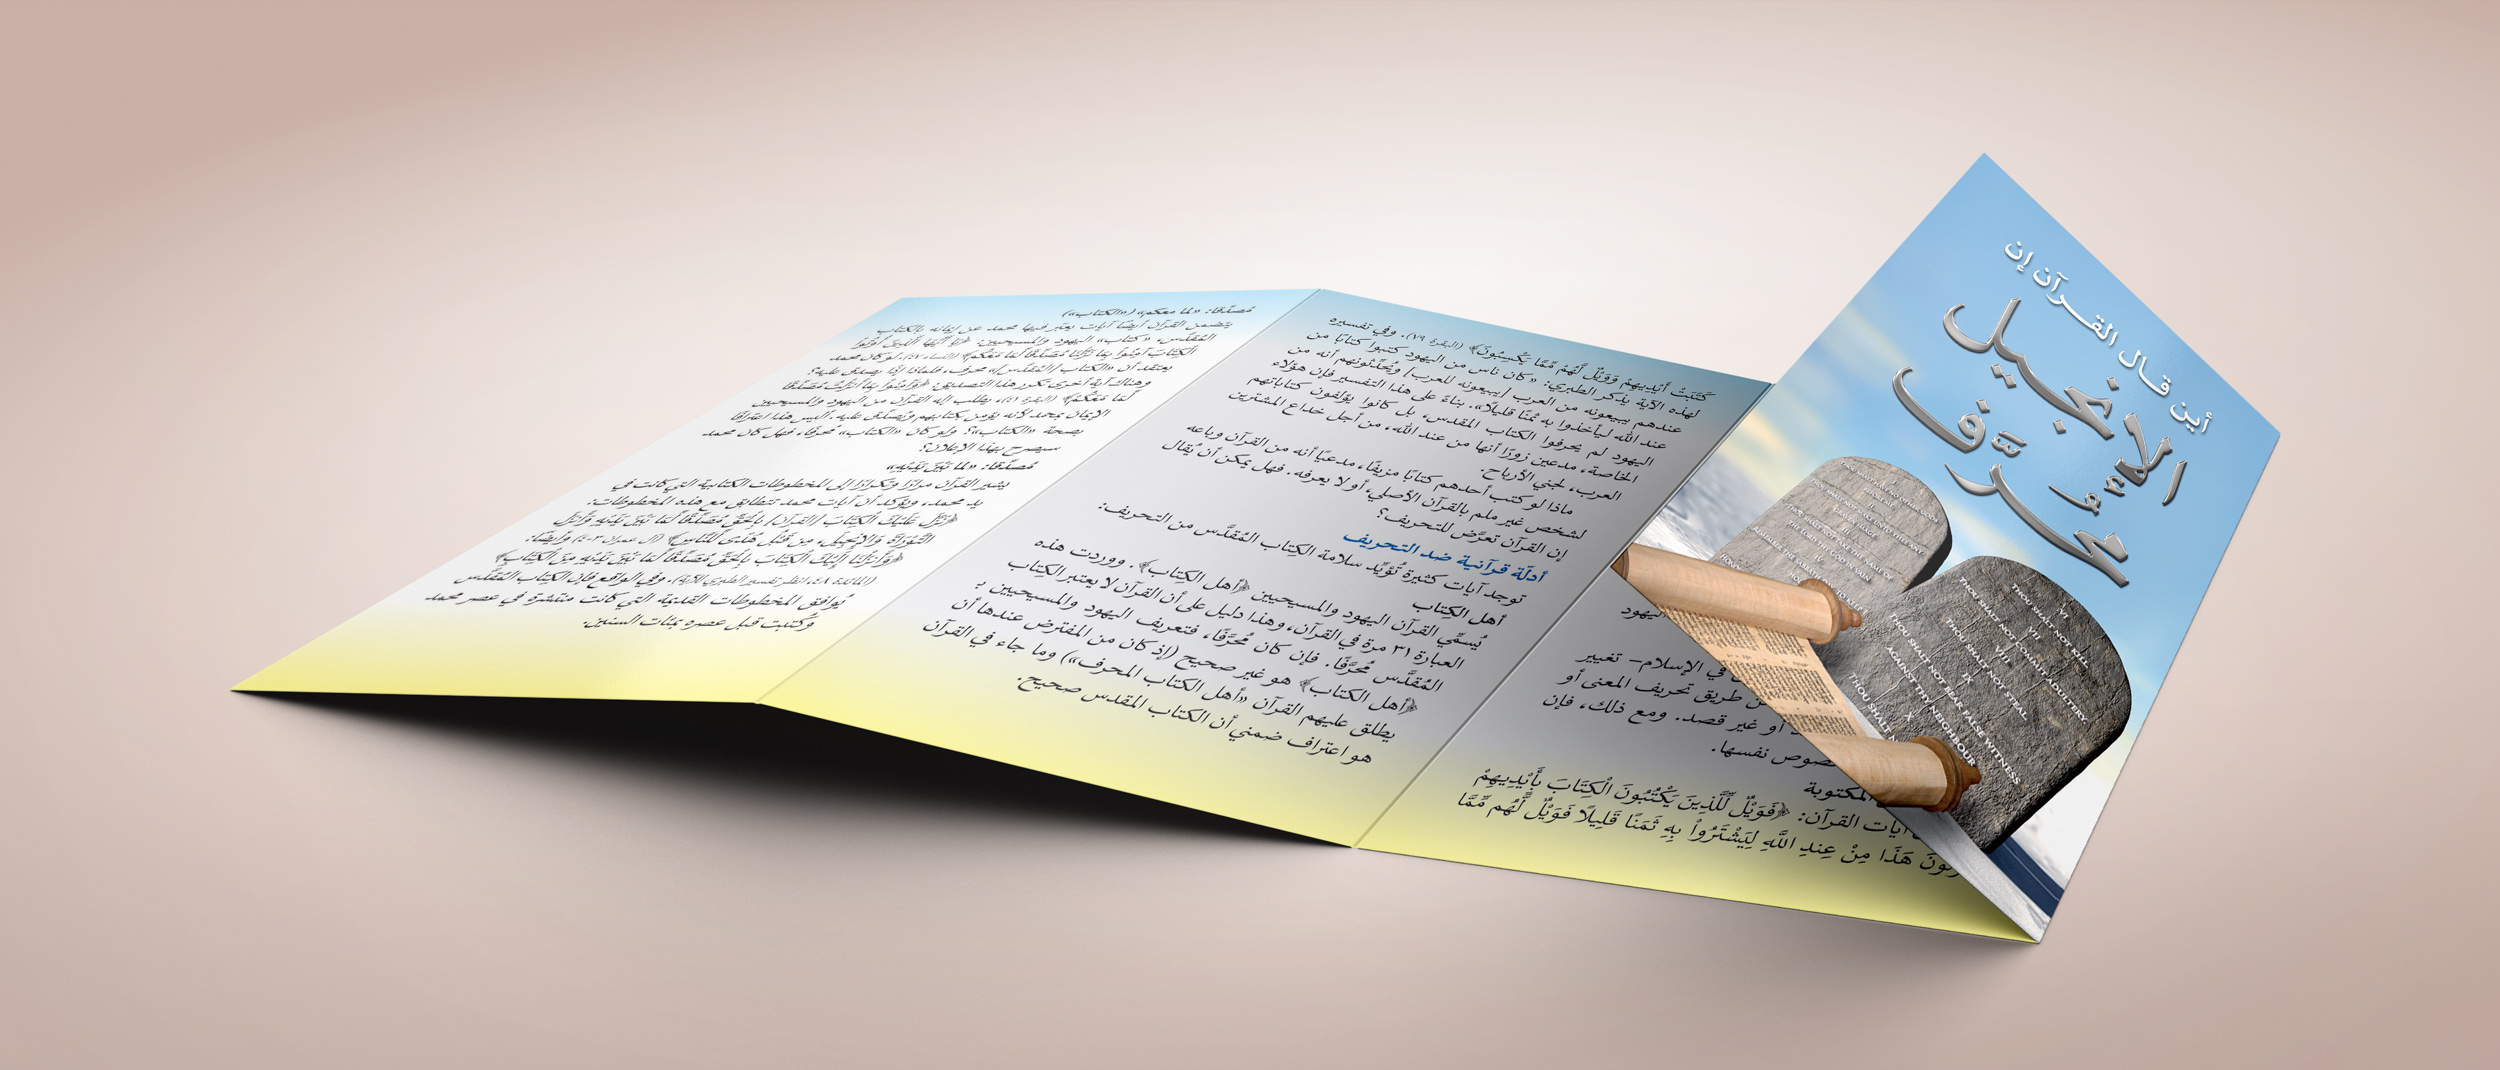 أين قال القرآن إن
الإنجيل
محرَّف
VI
THOU SHALT NOT KILL.
VII
THOU SHALT NOT COMMIT ADULTERY.
VIII
THOU SHALT NOT STEAL.
IX
THOU SHALT NOT BEAR FALSE WITNESS
AGAINST THY NEIGHBOUR
X
THOU SHALT
اليهود
في الإسلام– تغيير
عن طريق تحريف المعنى أو
أو غير قصد. ومع ذلك، فإن
نفسها.
المكتوبة
آيات القرآن: ﴿فَوَيْلٌ لِّلَّذِينَ يَكْتُبُونَ الْكِتَابَ بِأَيْدِيهِمْ
هَذَا مِنْ عِندِ اللَّهِ لِيَشْتَرُواْ بِهِ ثَمَنًا قَلِيلًا فَوَيْلٌ لَّهُم مِّمَّا
كَتَبَتْ أَيْدِيهِمْ وَوَيْلٌ لَّهُمْ مِّمَّا يَكْسِبُونَ﴾ (البقرة ٧٩). وفي تفسيره
لهذه الآية يذكر الطبري: «كان ناس من اليهود كتبوا كتابًا من
عندهم يبيعونه من العرب [يبيعونه للعرب] ويُحدِّثونهم أنه من
عند الله ليأخذوا به ثمنًا قليلًا». بناءً على هذا التفسير فإن هؤلاء
اليهود لم يحرفوا الكتاب المقدس، بل كانوا يؤلفون كتاباتهم
الخاصة، مدعين زورًا أنها من عند الله، من أجل خداع المشترين
العرب، لجني الأرباح.
ماذا لو كتب أحدهم كتابًا مزيفًا، مدعيًا أنه من القرآن وباعه
لشخص غير ملم بالقرآن الأصلي، أو لا يعرفه. فهل يمكن أن يُقال
إن القرآن تعرَّض للتحريف؟
أدلّة قرآنية ضد التحريف
توجد آيات كثيرة تُؤيِّد سلامة الكِتاب المُقدَّس من التحريف:
أهل الكِتاب
يُسمِّي القرآن اليهود والمسيحيين ﴿أهل الكِتاب﴾. ووردت هذه
العبارة ٣١ مرة في القرآن، وهذا دليل على أن القرآن لا يعتبر الكِتاب
المُقدَّس مُحرَّفًا. فإن كان مُحرَّفًا، فتعريف اليهود والمسيحيين بـ
﴿أهل الكتاب﴾ هو غير صحيح (إذ كان من المفترض عندها أن
يطلق عليهم القرآن «أهل الكتاب المحرف») وما جاء في القرآن
هو اعتراف ضمني أن الكتاب المقدس صحيح.
مُصدِّقًا: «لما معكم» («الكتاب»)
يتضمن القرآن أيضًا آيات يعبّر فيها محمد عن إيمانه بالكتاب
المُقدَّس، «كتاب» اليهود والمسيحيين: ﴿يَا أَيُّهَا الَّذِينَ أُوتُوا
الْكِتَابَ آمِنُوا بِمَا نَزَّلْنَا مُصَدِّقًا لِّمَا مَعَكُمْ﴾ (النساء ٤٧). لو كان محمد
يعتقد أن «الكتاب [المُقدَّس]» محرف، فلماذا إذًا يصدق عليه؟
وهناك آية أخرى تكرر هذا التصديق: ﴿وَآمِنُوا بِمَا أَنزَلْتُ مُصَدِّقًا
لِّمَا مَعَكُمْ﴾ (البقرة ٤١)، يطلب إله القرآن من اليهود والمسيحيين
الإيمان بمحمد لأنه يؤمن بكتابهم ويُصدِّق عليه. أليس هذا اعترافًا
بصحة «الكتاب»؟ ولو كان «الكتاب» مُحرفًا، فهل كان محمد
سيصرح بهذا الإعلان؟
مُصدِّقًا: «لِمَا بَيْنَ يَدَيْهِ»
يشير القرآن مرارًا وتكرارًا إلى المخطوطات الكتابية التي كانت في
يد محمد، ويؤكد أن آيات محمد تتطابق مع هذه المخطوطات:
﴿نَزَّلَ عَلَيْكَ الْكِتَابَ [القرآن] بِالْحَقِّ مُصَدِّقًا لِّمَا بَيْنَ يَدَيْهِ وَأَنزَلَ
التَّوْرَاةَ وَالإِنجِيلَ، مِن قَبْلُ هُدًى لِّلنَّاسِ﴾ (آل عمران ٣-٤) وأيضًا:
﴿وَأَنزَلْنَا إِلَيْكَ الْكِتَابَ بِالْحَقِّ مُصَدِّقًا لِّمَا بَيْنَ يَدَيْهِ مِنَ الْكِتَابِ﴾
(المائدة ٤٨، انظر تفسير الطبري للآية). وفي الواقع فإن الكِتاب المُقدَّس
يُوافق المخطوطات القديمة التي كانت منتشرة في عصر محمد
وكتبت قبل عصره بمئات السنين.